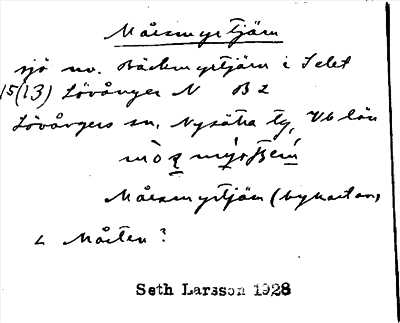 Mårsmyrtjärn
sjö nv. Bäckmyrtjärn i Selet
15(13) Lövånger N B 2
Lövångers sn, Nysätra tg, Vb län
Mårsmyrtjärn (bykartan)
L Mårten?
Seth Larsson 1928